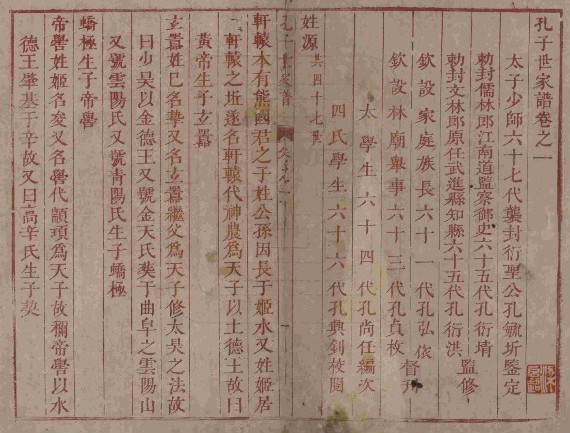 孔子世家譜卷之一
太子少師六十七代襲封衍聖公孔毓圻鑒定
勅封儒林郎江南道監察御史六十五代孔衍
勅封文林郎原任武進縣知縣六十五代孔衍洪
監修
欽設家庭族長六十一代孔弘依
欽設林廟舉事六十三代孔貞枚
督刊
太學生六十四代孔尚任編次
四氏學生六十六代孔興釗校閱
姓源共四十七世
孔子世家譜 卷之一 一
軒轅本有熊國君之子姓公孫因長于姬水又姓姬居
軒轅之丘遂名軒轅代神農為天子以土德王故曰
黃帝生子玄囂
玄囂姓巳名摯又名玄囂繼父為天子修太昊之法故
曰少昊以金德王又號金天氏葬于曲阜之雲陽山
又號雲陽氏又號青陽氏生子蟜極
蟜極生子帝嚳
帝嚳姓姬名夋又名嚳代顓頊為天子故稱帝嚳以水
德王肇基于辛故又曰高辛氏生子契